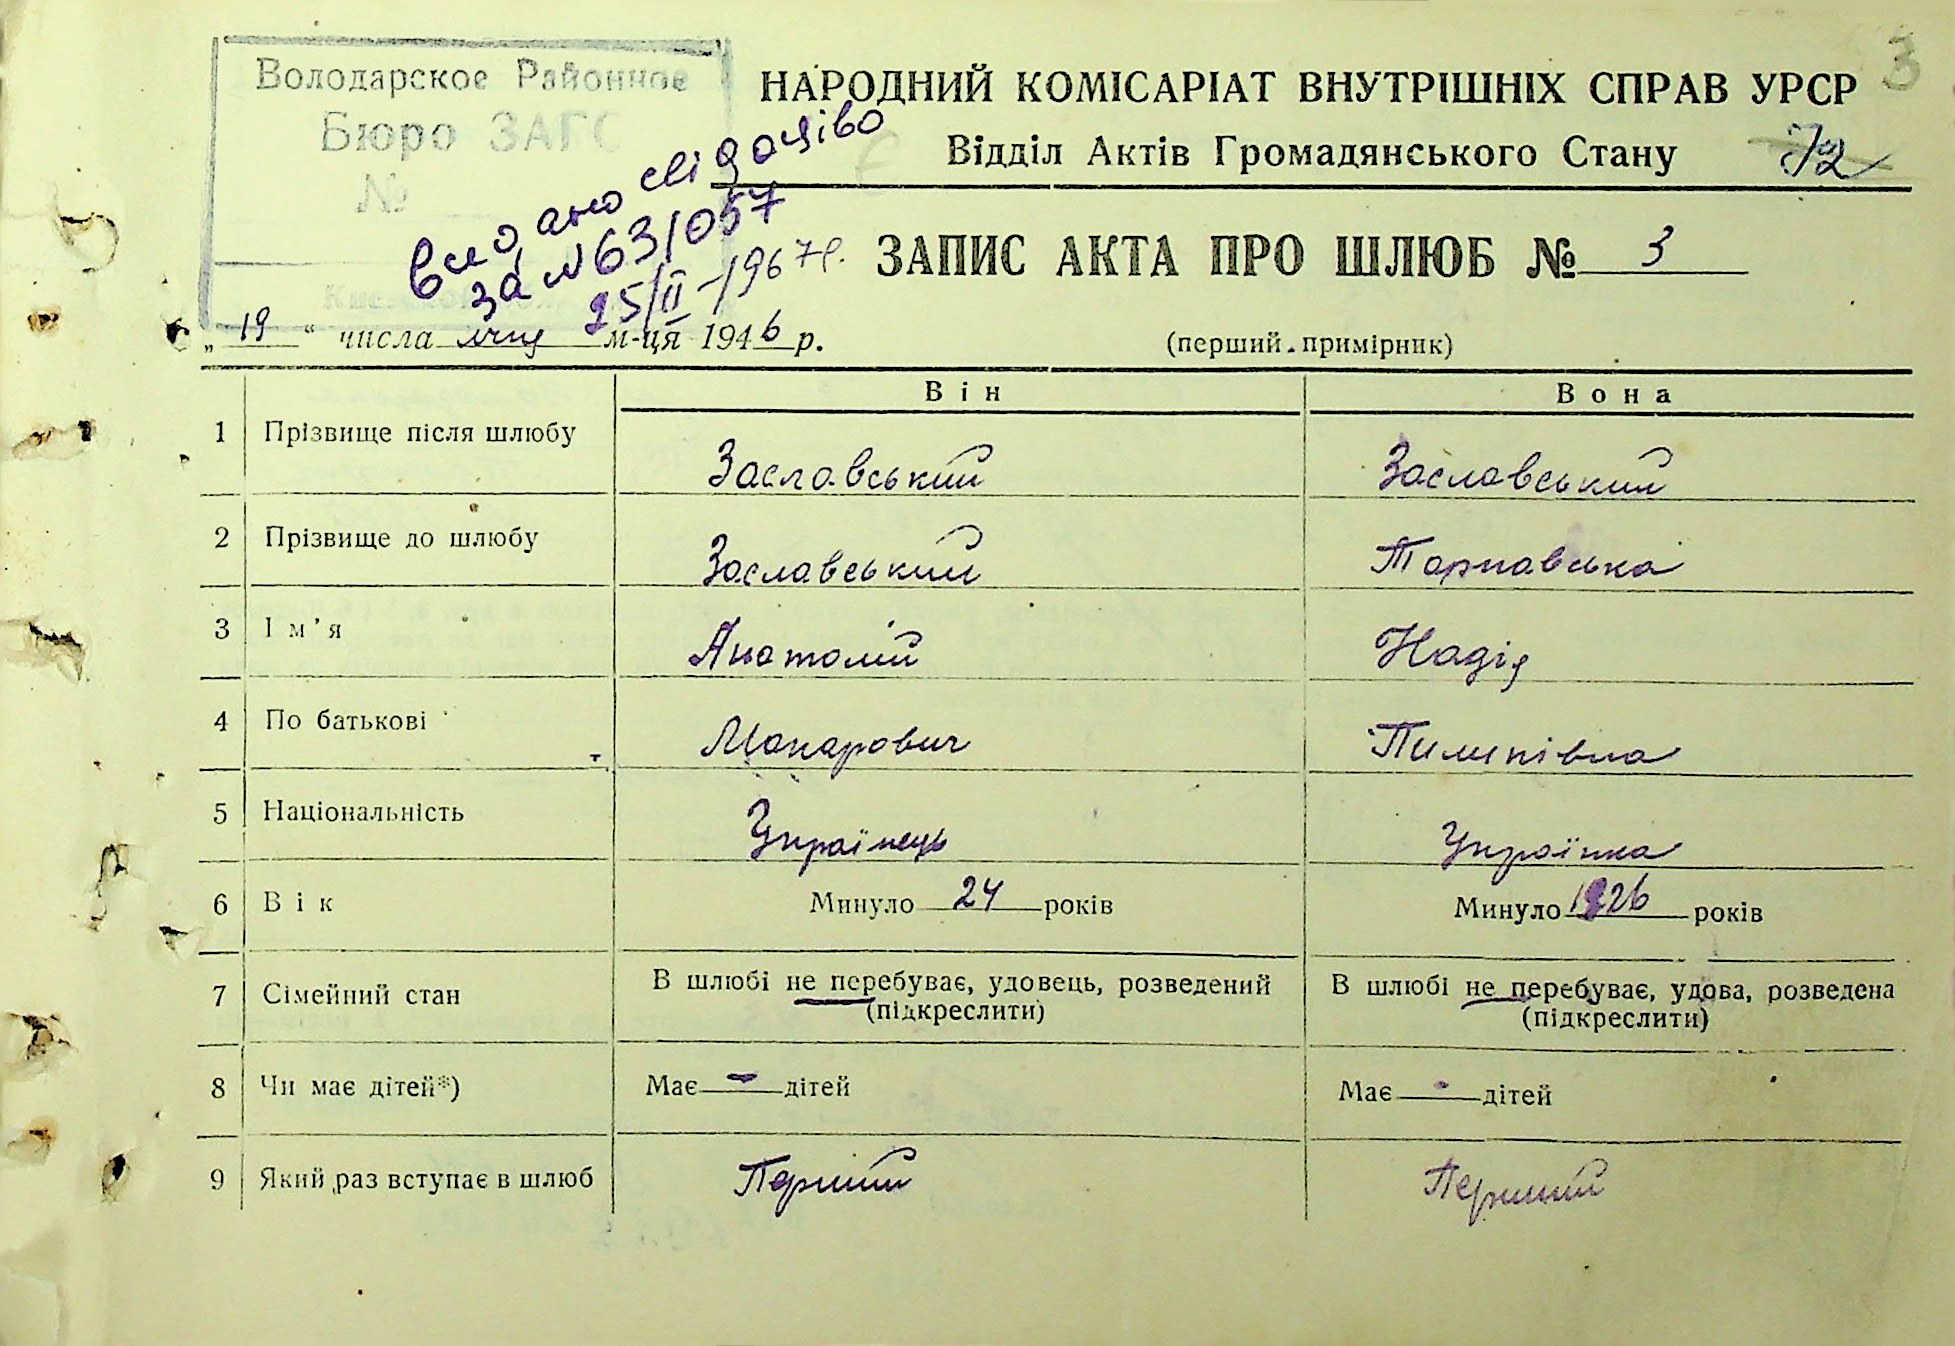 3
Володарское Районное
Бюро ЗАГС
№
НАРОДНИЙ КОМІСАРІАТ ВНУТРІШНІХ СПРАВ УРСР
Відділ Актів Громадянського Стану
72
видано свідоцтво
за №63/057
25/II-1967р.
ЗАПИС АКТА ПРО ШЛЮБ № 3
„19“ числа м-ця 1946 р.
(перший примірник)
Він Вона
1 Прізвище після шлюбу Заславський Заславський
2 Прізвище до шлюбу Заславський Тарнавська
3 Ім’я Анатолій Надія
4 По батькові Макарович Пилипівна
5 Національність Українець Українка
6 Вік Минуло 24 років Минуло 1926 років
7 Сімейний стан В шлюбі не перебуває, удовець, розведений В шлюбі не перебуває, удова, розведена
(підкреслити) (підкреслити)
8 Чи має дітей*) Має - дітей Має - дітей
9 Який раз вступає в шлюб Перший Перший